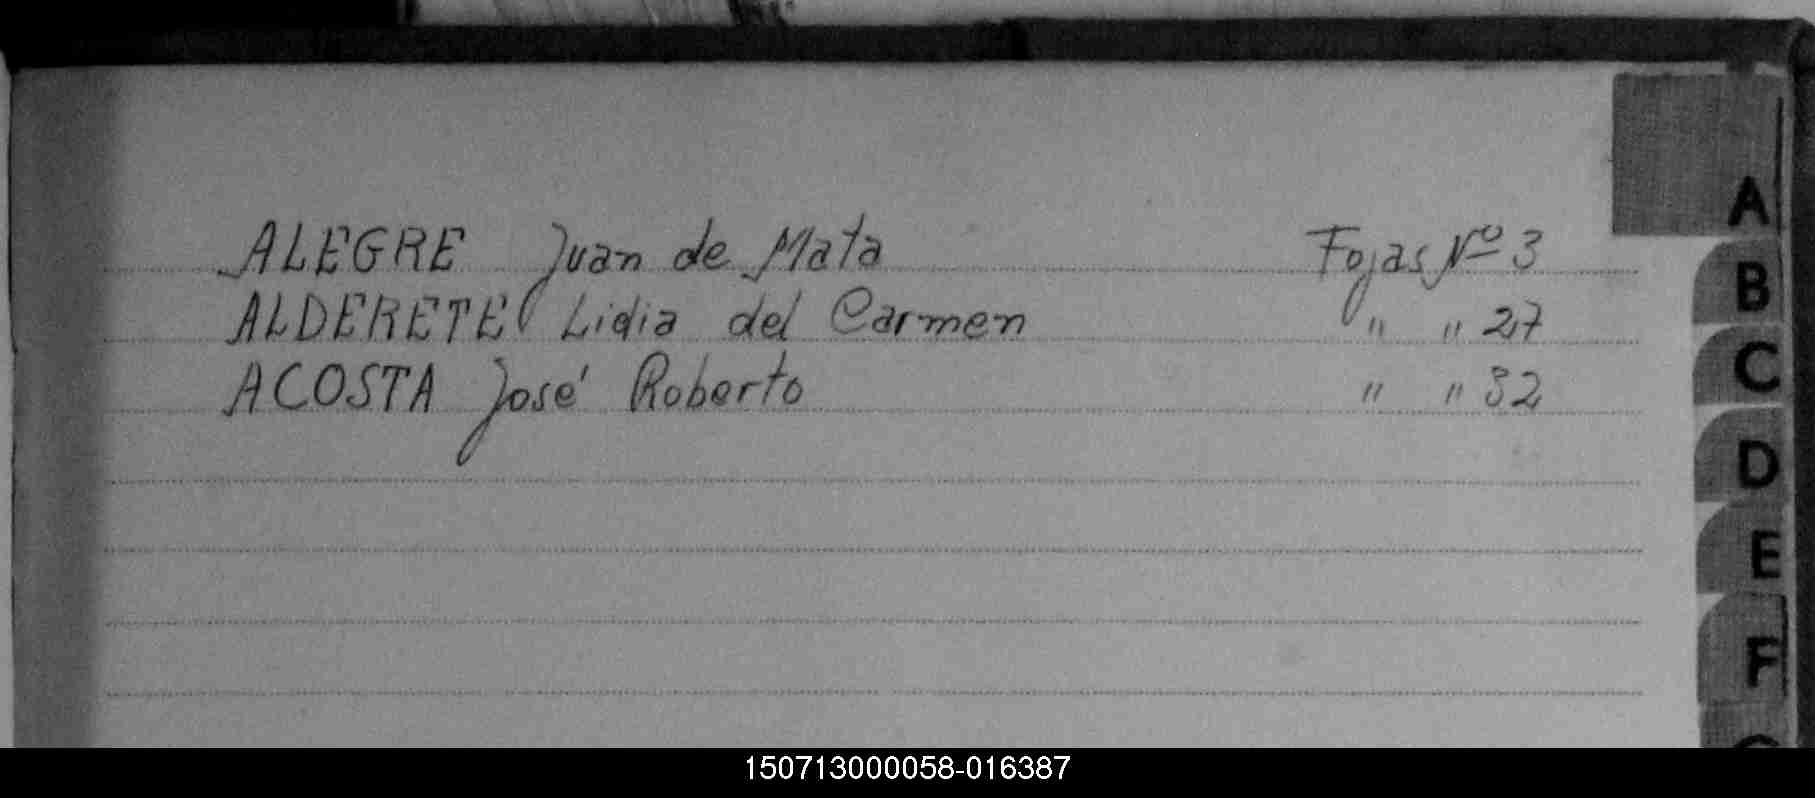 ALEGRE Juan de Mata Fojas Nº 3
ALDERETE Lidia del Carmen " " 27
ACOSTA José Roberto " " 32
A
B
C
D
E
F
150713000058-016387